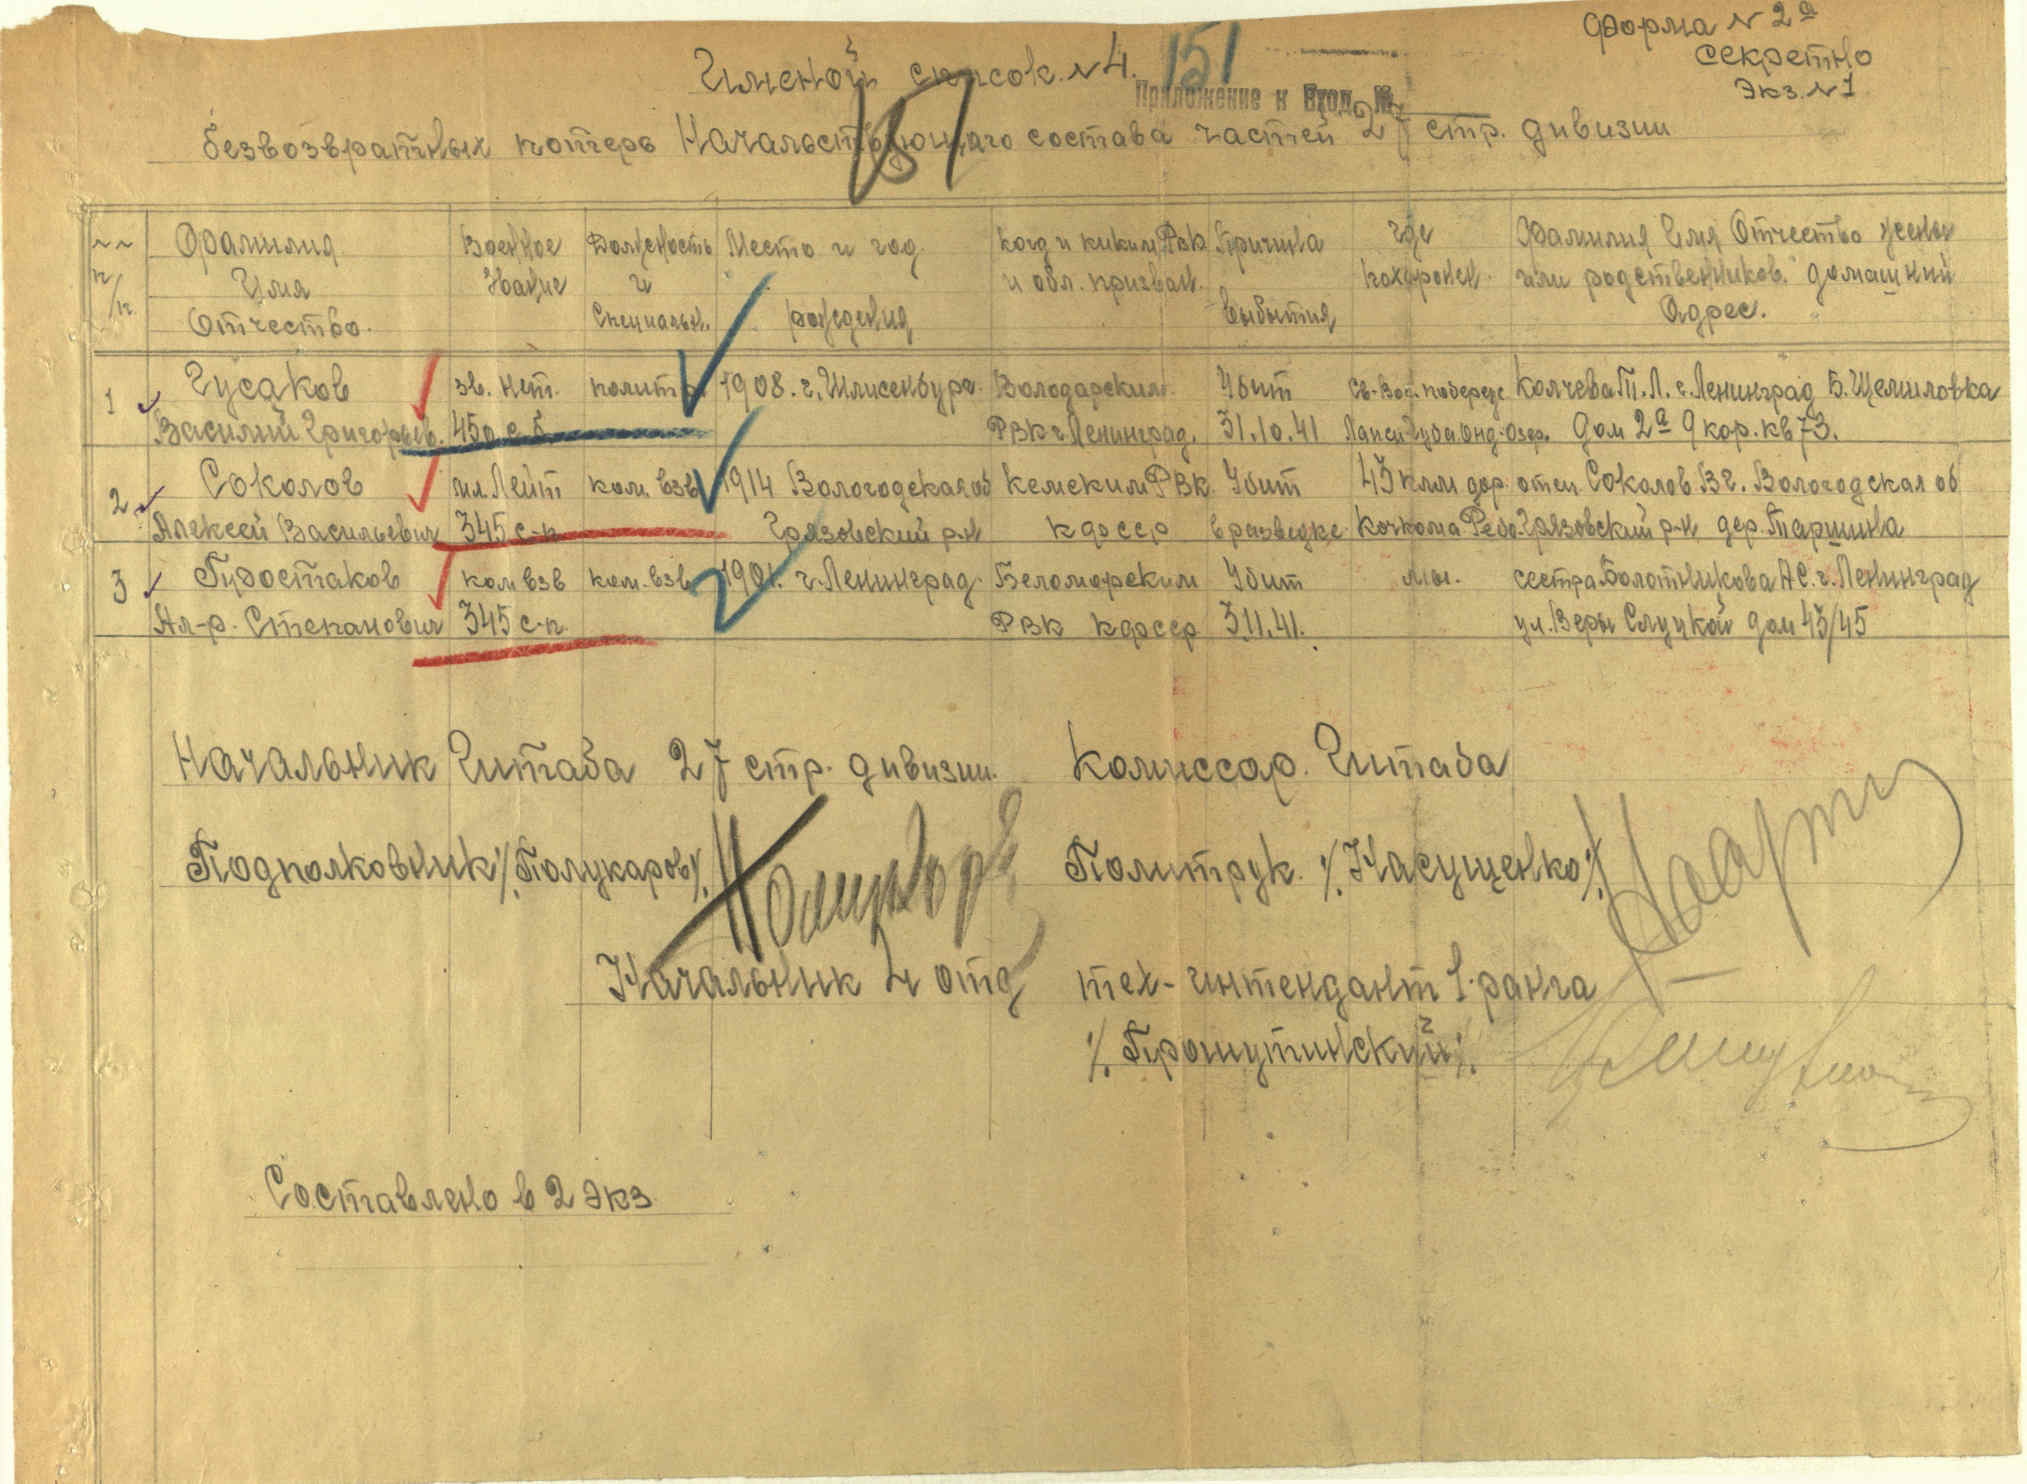 Форма N 2а
Секретно
Экз. N 1
Именой список N 4.
151
Приложение к Вход. №
151
безвозвратных потерь Начальствующаго состава частей 27 стр. дивизии
NN п/п
Фамилия Имя Отчество.
Военное Звание
Должность и Специальн.
Место и год рождения
Когд и каким РВК и обл. призван.
Причина выбытия
Где похоронен.
Фамилия Имя Отчество жены или родственников. домашний Адрес.
1 Гусаков зв. нет. политр. 1908. г. Шлисенбург. Володарским. Убит Св-Вост. побереж Колчева Т. Л. г. Ленинград Б. Щемиловка
Василий Григорьев. 45 о.с.б. РВК г Ленинград. 31.10.41 Онд-Озер. Дом 2а 9 кор. кв 73.
2 Соколов мл. Лейт ком. взв 1914 Вологодская об Кемским РВК Убит 43 клм дор. отец Соколов В г. Вологодская об
Алексей Васильевич 345 с-п Грязовский р-н КФССР в разведке Кочкома Ребо. Грязовский р-н дер. Таршина
3 ком взв ком. взв 1901. г. Ленинград Беломорским Убит сестра Болотникова А С. г. Ленинград
Ал-р. Степанович 345 с-п. РВК КФССР 3.11.41. ул. Веры Слуцкой дом 43/45
Начальник Штаба 27 стр. дивизии. Комиссар. Штаба
Подполковник /Полукаров/. Политрук. /Насущенко/
Начальник 4 отд тех-интендант 1 ранга
/Прошутинский/.
Составлено в 2 экз